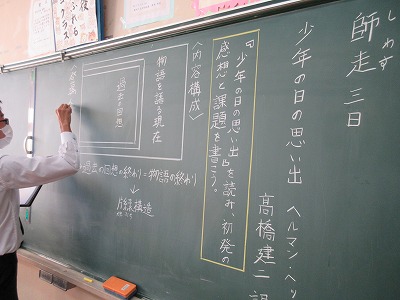 しわす
師走 三日
少年の日の思い出 ヘルマン・ヘッ
高橋建二 訳
『少年の日の思い出』を読み、初発の
感想と課題を書こう。
〈内容構成〉
物語を語る現在
過去の回想
過去の回想の終わり=物語の終わり
↓
片縁構造